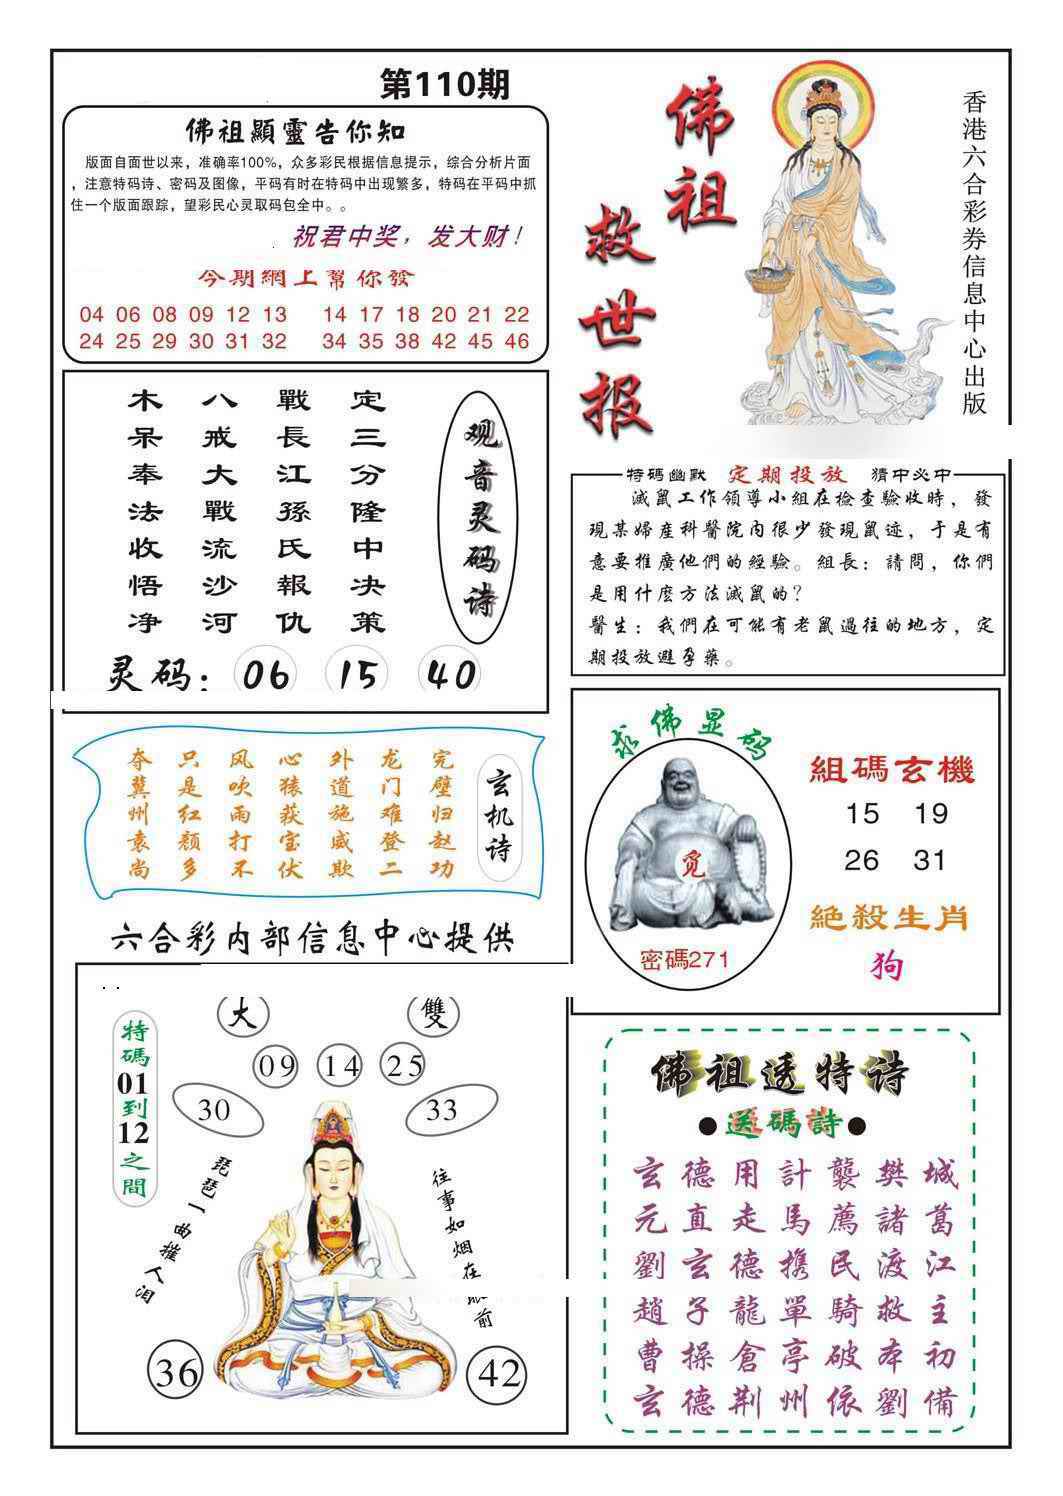 第110期
佛祖顯靈告你知
版面自面世以来，准确率100%，众多彩民根据信息提示，综合分析片面
，注意特码诗、密码及图像，平码有时在特码中出现繁多，特码在平码中抓
住一个版面跟踪，望彩民心灵取码包全中。。
祝君中奖，发大财！
今期網上幫你發
04 06 08 09 12 13 14 17 18 20 21 22
24 25 29 30 31 32 34 35 38 42 45 46
佛祖
救世报
香港六合彩券信息中心出版
观音灵码诗
定三分隆中决策
戰長江孫氏報仇
八戒大戰流沙河
木呆奉法收悟净
灵码：06 15 40
特碼幽默 定期投放 猜中必中
滅鼠工作领導小組在檢查驗收時，發
現某婦産科醫院内很少發現鼠迹，于是有
意要推廣他們的經驗。組長：請問，你們
是用什麽方法滅鼠的？
醫生：我們在可能有老鼠過往的地方，定
期投放避孕藥。
玄机诗
完璧归赵功
龙门难登二
外道施威欺
心猿获宝伏
风吹雨打不
只是红颜多
夺冀州袁尚
求佛显码
觅
密碼271
組碼玄機
15 19
26 31
絶殺生肖
狗
六合彩内部信息中心提供
大 雙
特碼01到12之間
09 14 25
30 33
琵琶一曲摧人泪
往事如烟在眼前
36 42
佛祖透特诗
●送碼詩●
玄德用計襲樊城
元直走馬薦諸葛
劉玄德携民渡江
趙子龍單騎救主
曹操倉亭破本初
玄德荆州依劉備